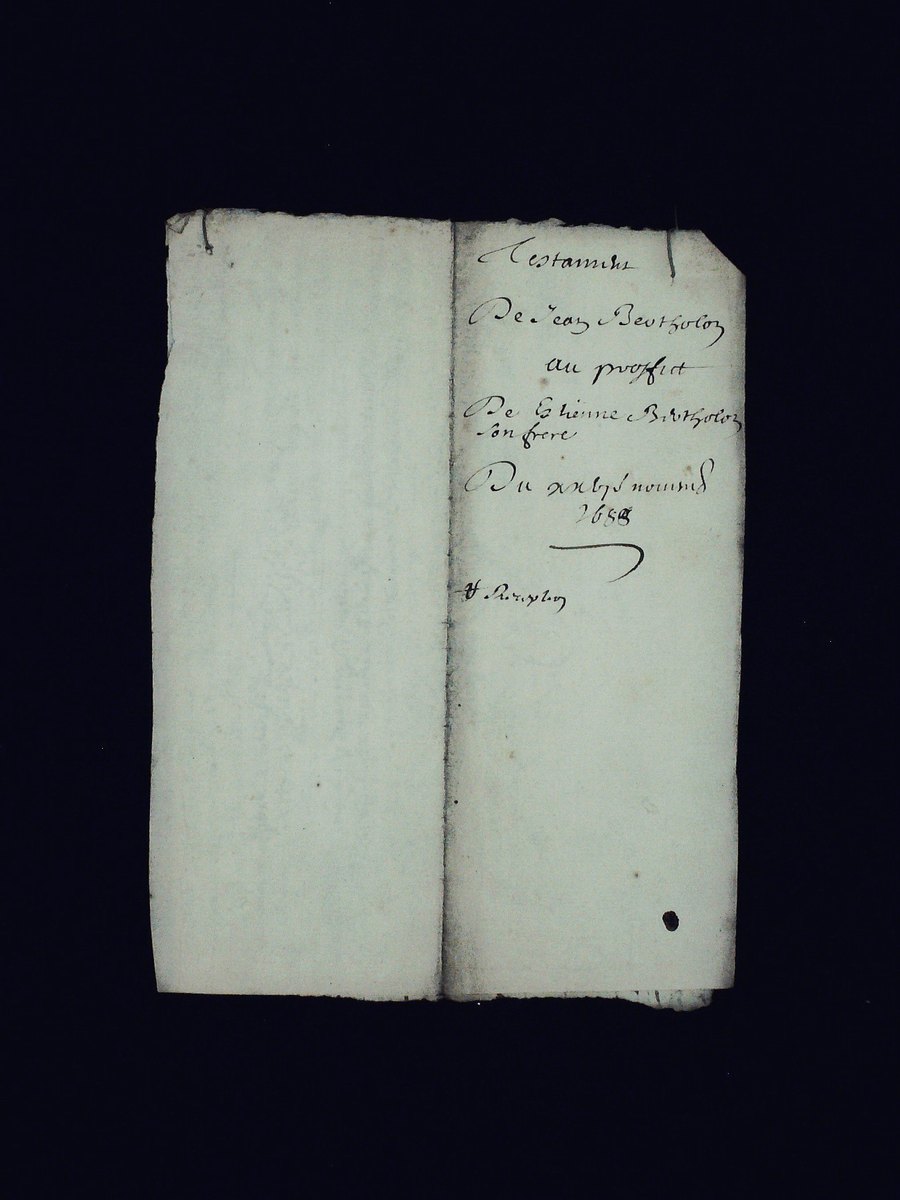 Testament
De Jean Bertholon
au proffict
De Estienne Bertholon
son frere
Du xxvje novemb
1688